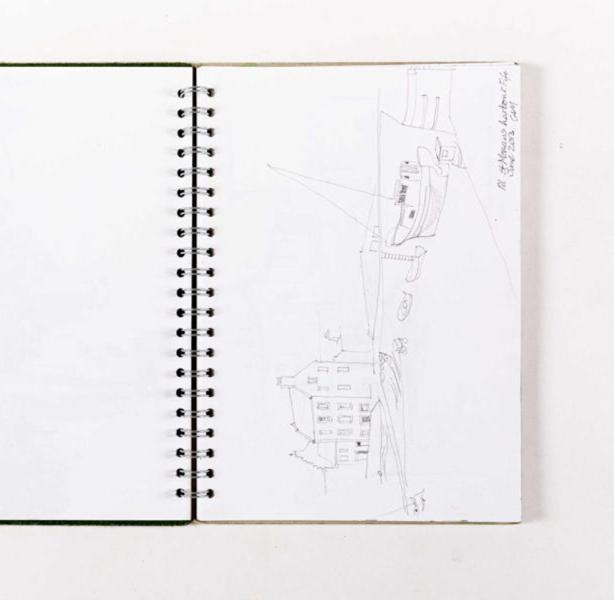 St Monans harbour Fife
June 2013